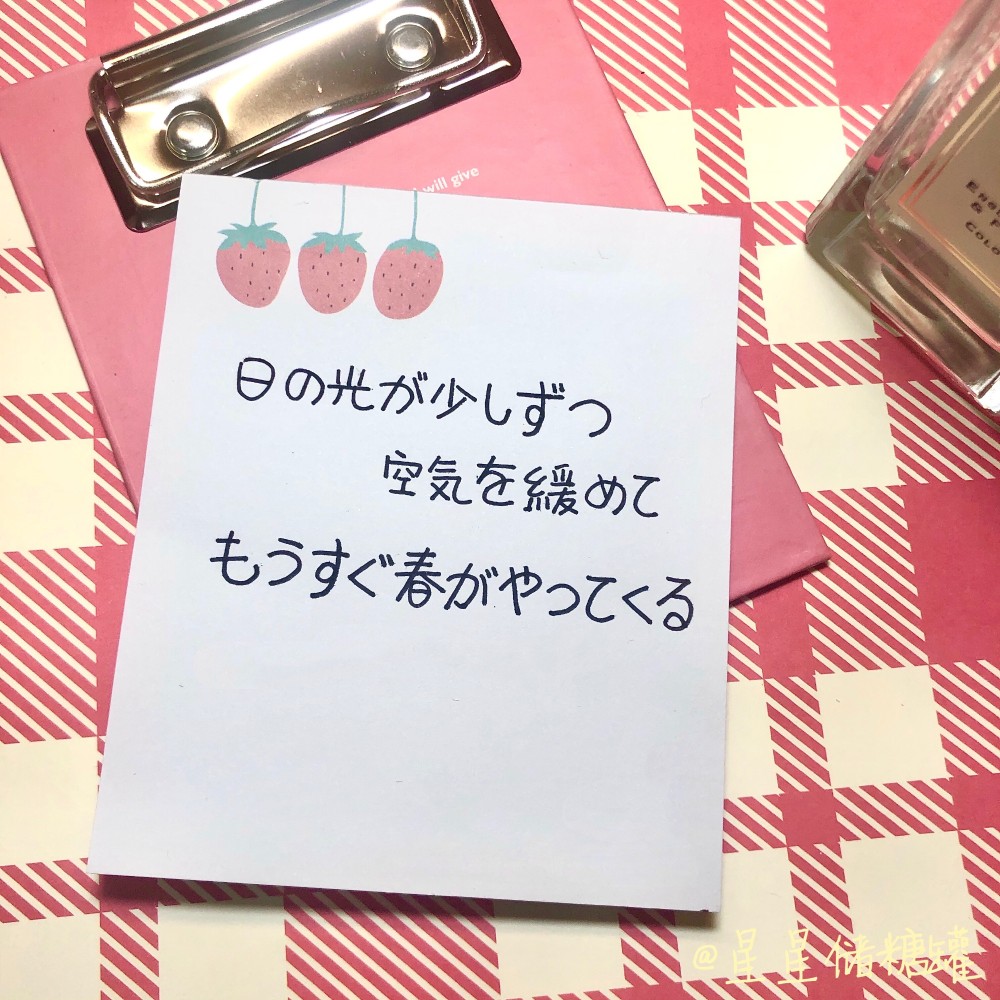 will give
日の光が少しずつ
空気を緩めて
もうすぐ春がやってくる
@星星储糖罐